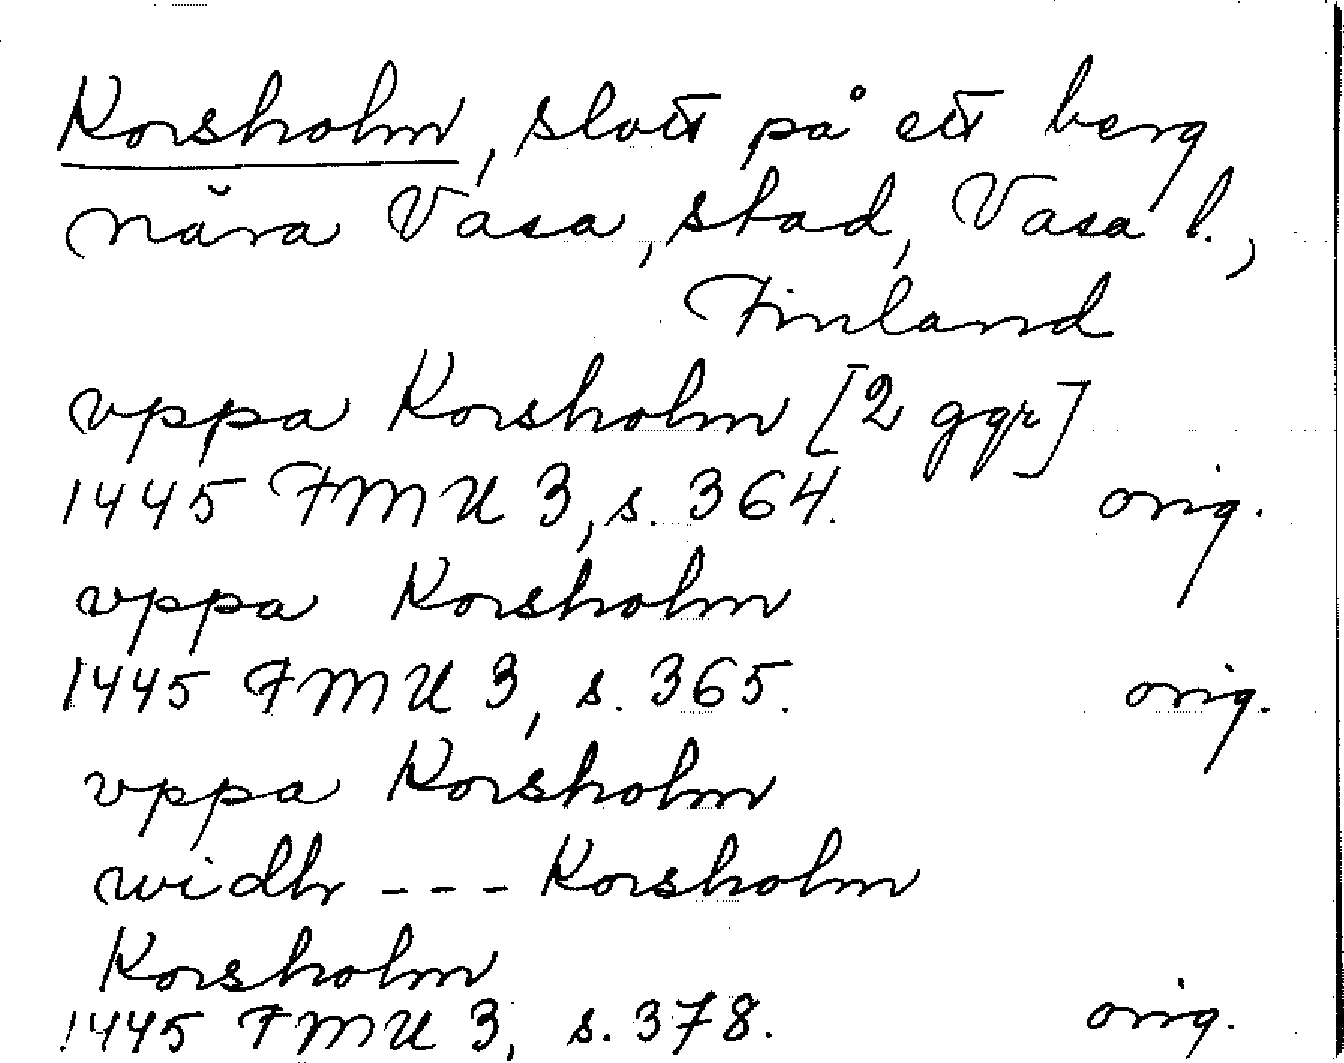 Korsholm, slott på ett berg
nära Vasa, stad, Vasa l.,
Finland
vppa Korsholm [2 ggr]
1445 FMU 3, s. 364. orig.
vppa Korsholm
1445 FMU 3, s. 365. orig.
vppa Korsholm
widh --- Korsholm
Korsholm
1445 FMU 3, s. 378. orig.